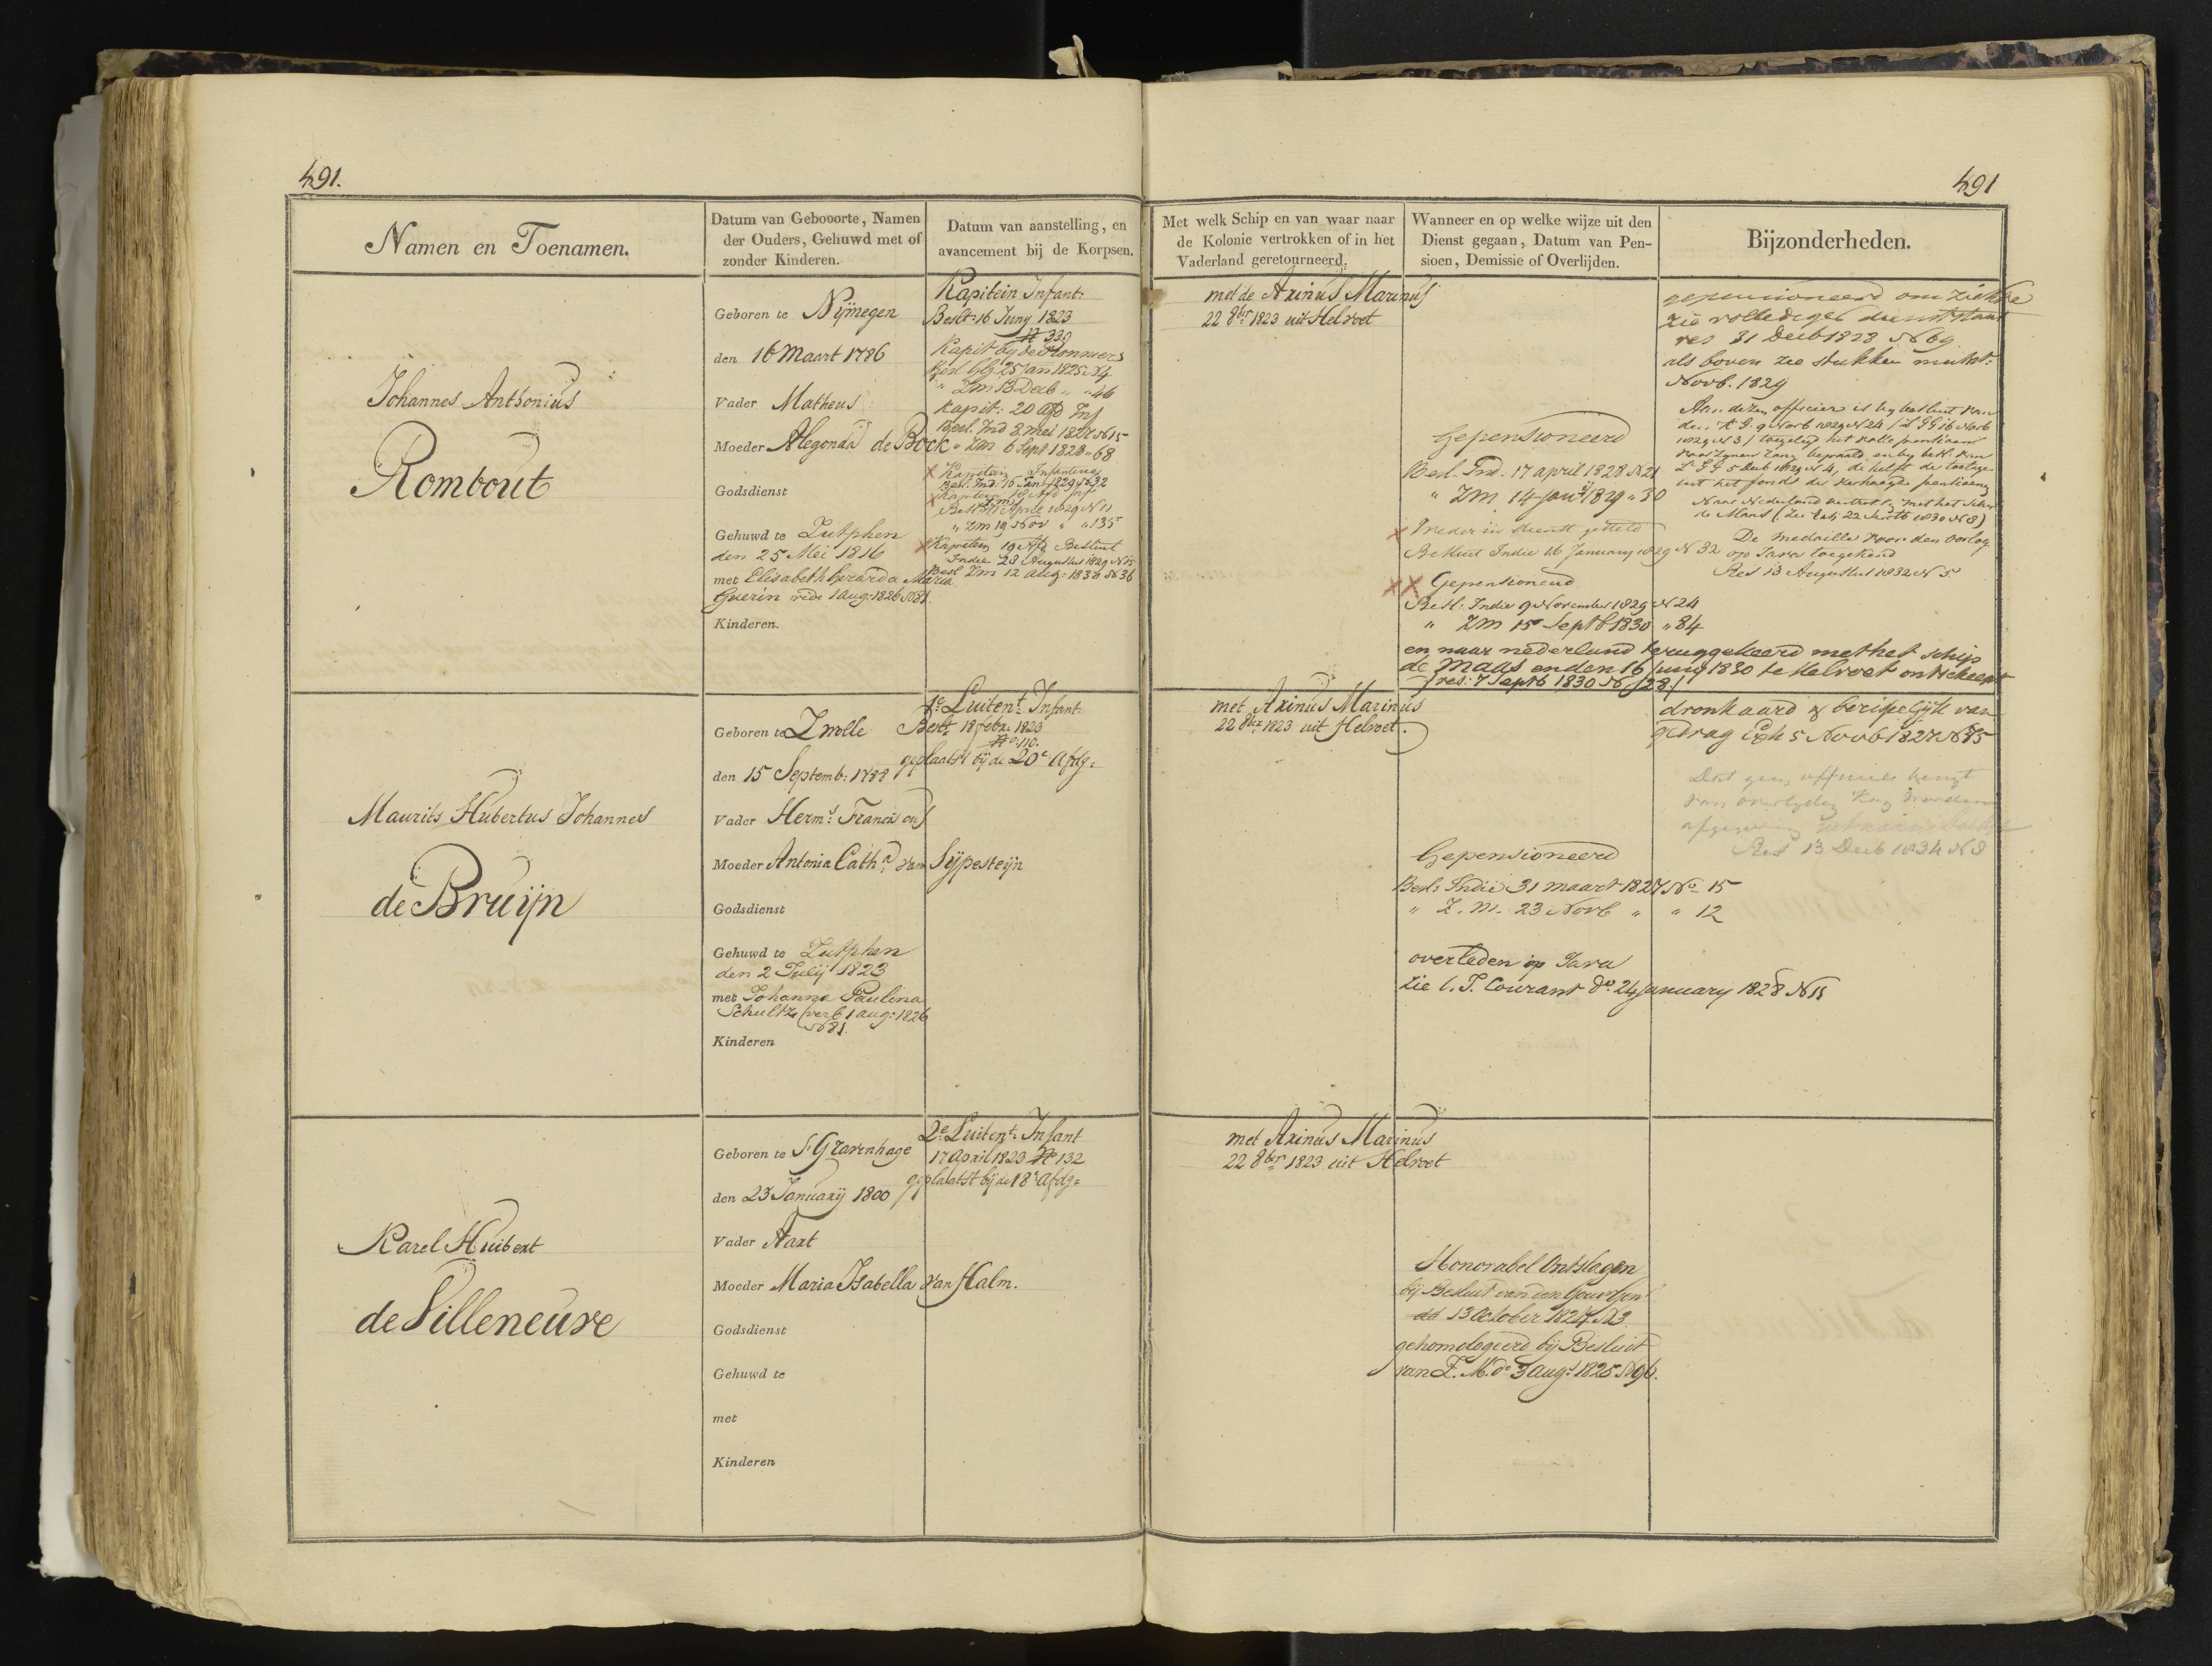 491.
491
Namen en Toenamen.
Datum van Gebooorte, Namen
der Ouders, Gehuwd met of
zonder Kinderen.
Datum van aanstelling, en
avancement bij de Korpsen.
Met welk Schip en van waar naar
de Kolonie vertrokken of in het
Vaderland geretourneerd.
Wanneer en op welke wijze uit den
Dienst gegaan, Datum van Pen-
sioen, Demissie of Overlijden.
Bijzonderheden.
Johannes Anthonius
Rombout
Geboren te Nijmegen
den 16 Maart 1786
Vader Matheus
Moeder Alegonda de Bock
Godsdienst
Gehuwd te Zutphen
den 25 Mei 1816
met Elisabeth Gerarda Maria
Guerin rede 1 Aug: 1826 N 81.
Kinderen.
Kapitein Infant:
Beslt: 16 Juny 1823
N 330
Kapit bij de Pionniers
Besl GG 25 Jan 1825 N 4
" ZM 13 Decb " " 46
Kapit: 20 Afd Inf
Besl. Ind 3 Mei 1827 N 15
" ZM 6 Sept 1828 " 68
Kapitein Infanterie
Besl. Ind: 16 Jan 1829 N 32
Kapitein 18 Afd Inf
April 1829 N 11
" ZM 19 Nov " " 135
Kapitein 19 Afd Besluit
Indie 28 Augustus 1829 N 15
Besl ZM 12 Aug: 1830 N 36
met de Arinus Marinus
22 8br 1823 uit Helvoet
Gepensioneerd
Besl. Ind: 17 april 1828 N 21
" ZM 14 Janij 1829 " 30
Weder in dienst gesteld
Besluit Indie 16 January 1829 N 32
Gepensioneerd
Besl: Indie 9 November 1829 N 24
" ZM 15 Septb 1830 " 84
en naar nederland teruggekeerd met het schip
de Maas en den 16 Juny 1830 te Helvoet ontscheept
res: 7 Septb 1830 N 28
gepensioneerd om ziekte
zie volledigen dienststaat
res 31 Decb 1828 N 69
als boven zie stukken
Novb. 1829
Aan dezen officier is by besluit van
den K G. 9 Novb 1829 N 24 / L GG 16 Novb
1829 N 3 / toegelegd het volle pensioen
L GG 5 Decb 1829 N 4, de helft de toelage
uit het fonds der verhoogde pensioenen
Naar Nederland vertrokk. met het schip
de Maas
De medaille voor den oorlog
op Java toegekend
Res 13 Augustus 1832 N 5
Maurits Hubertus Johannes
de Bruijn
Geboren te Zwolle
den 15 Septemb: 1788
Vader Herms: Francis on
Moeder Antonia Cath:a van Sijpesteijn
Godsdienst
Gehuwd te Zutphen
den 2 Julij 1823
met Johanna Paulina
Schultz (verb 1 aug: 1826
N 81.
Kinderen
1e Luitent. Infant:
Beslt 18 Febr. 1823
No. 110.
geplaatst bij de 20e Afdg:
met Arinus Marinus
22 8br 1823 uit Helvoet.
Gepensioneerd
Besl: Indië 31 maart 1827 No. 15
" Z. M. 23 Novb " " 12
overleden op Java
zie C. J. Courant do. 24 January 1828 N 11
dronkaard & berispelijk van
gedrag Exh 5 Novb 1827 N 85
Dat geen officieel
van overlyden kan worden
afgegeven
Res 13 Decb 1834 N 8
Karel Huibert
de Villeneuve
Geboren te S Gravenhage
den 23 Januarij 1800
Vader Aart
Moeder Maria Isabella van Halm.
Godsdienst
Gehuwd te
met
Kinderen
2e Luitent: Infant
17 April 1823 No 132
geplaatst bij de 18e Afdg:
met Arinus Marinus
22 8br 1823 uit Helvoet
Honorabel Ontslagen
bij Besluit van den Gouv Gen
dd 13 October 1824 N 3.
gehomologeerd bij Besluit
van Z. M. do 3 Augt 1825 N 96.